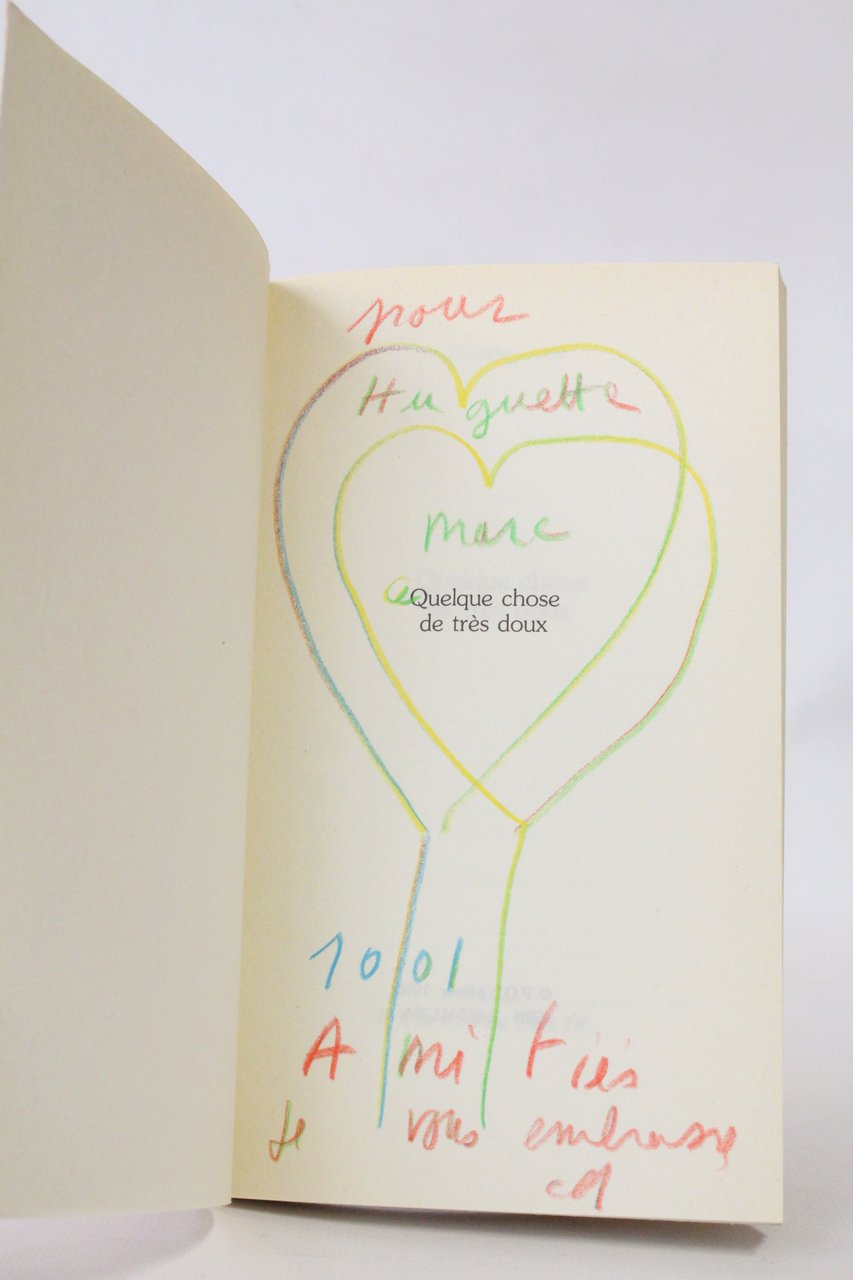 pour
Huguette
marc
a
Quelque chose
de très doux
1001
Amitiés
Je vous embrasse